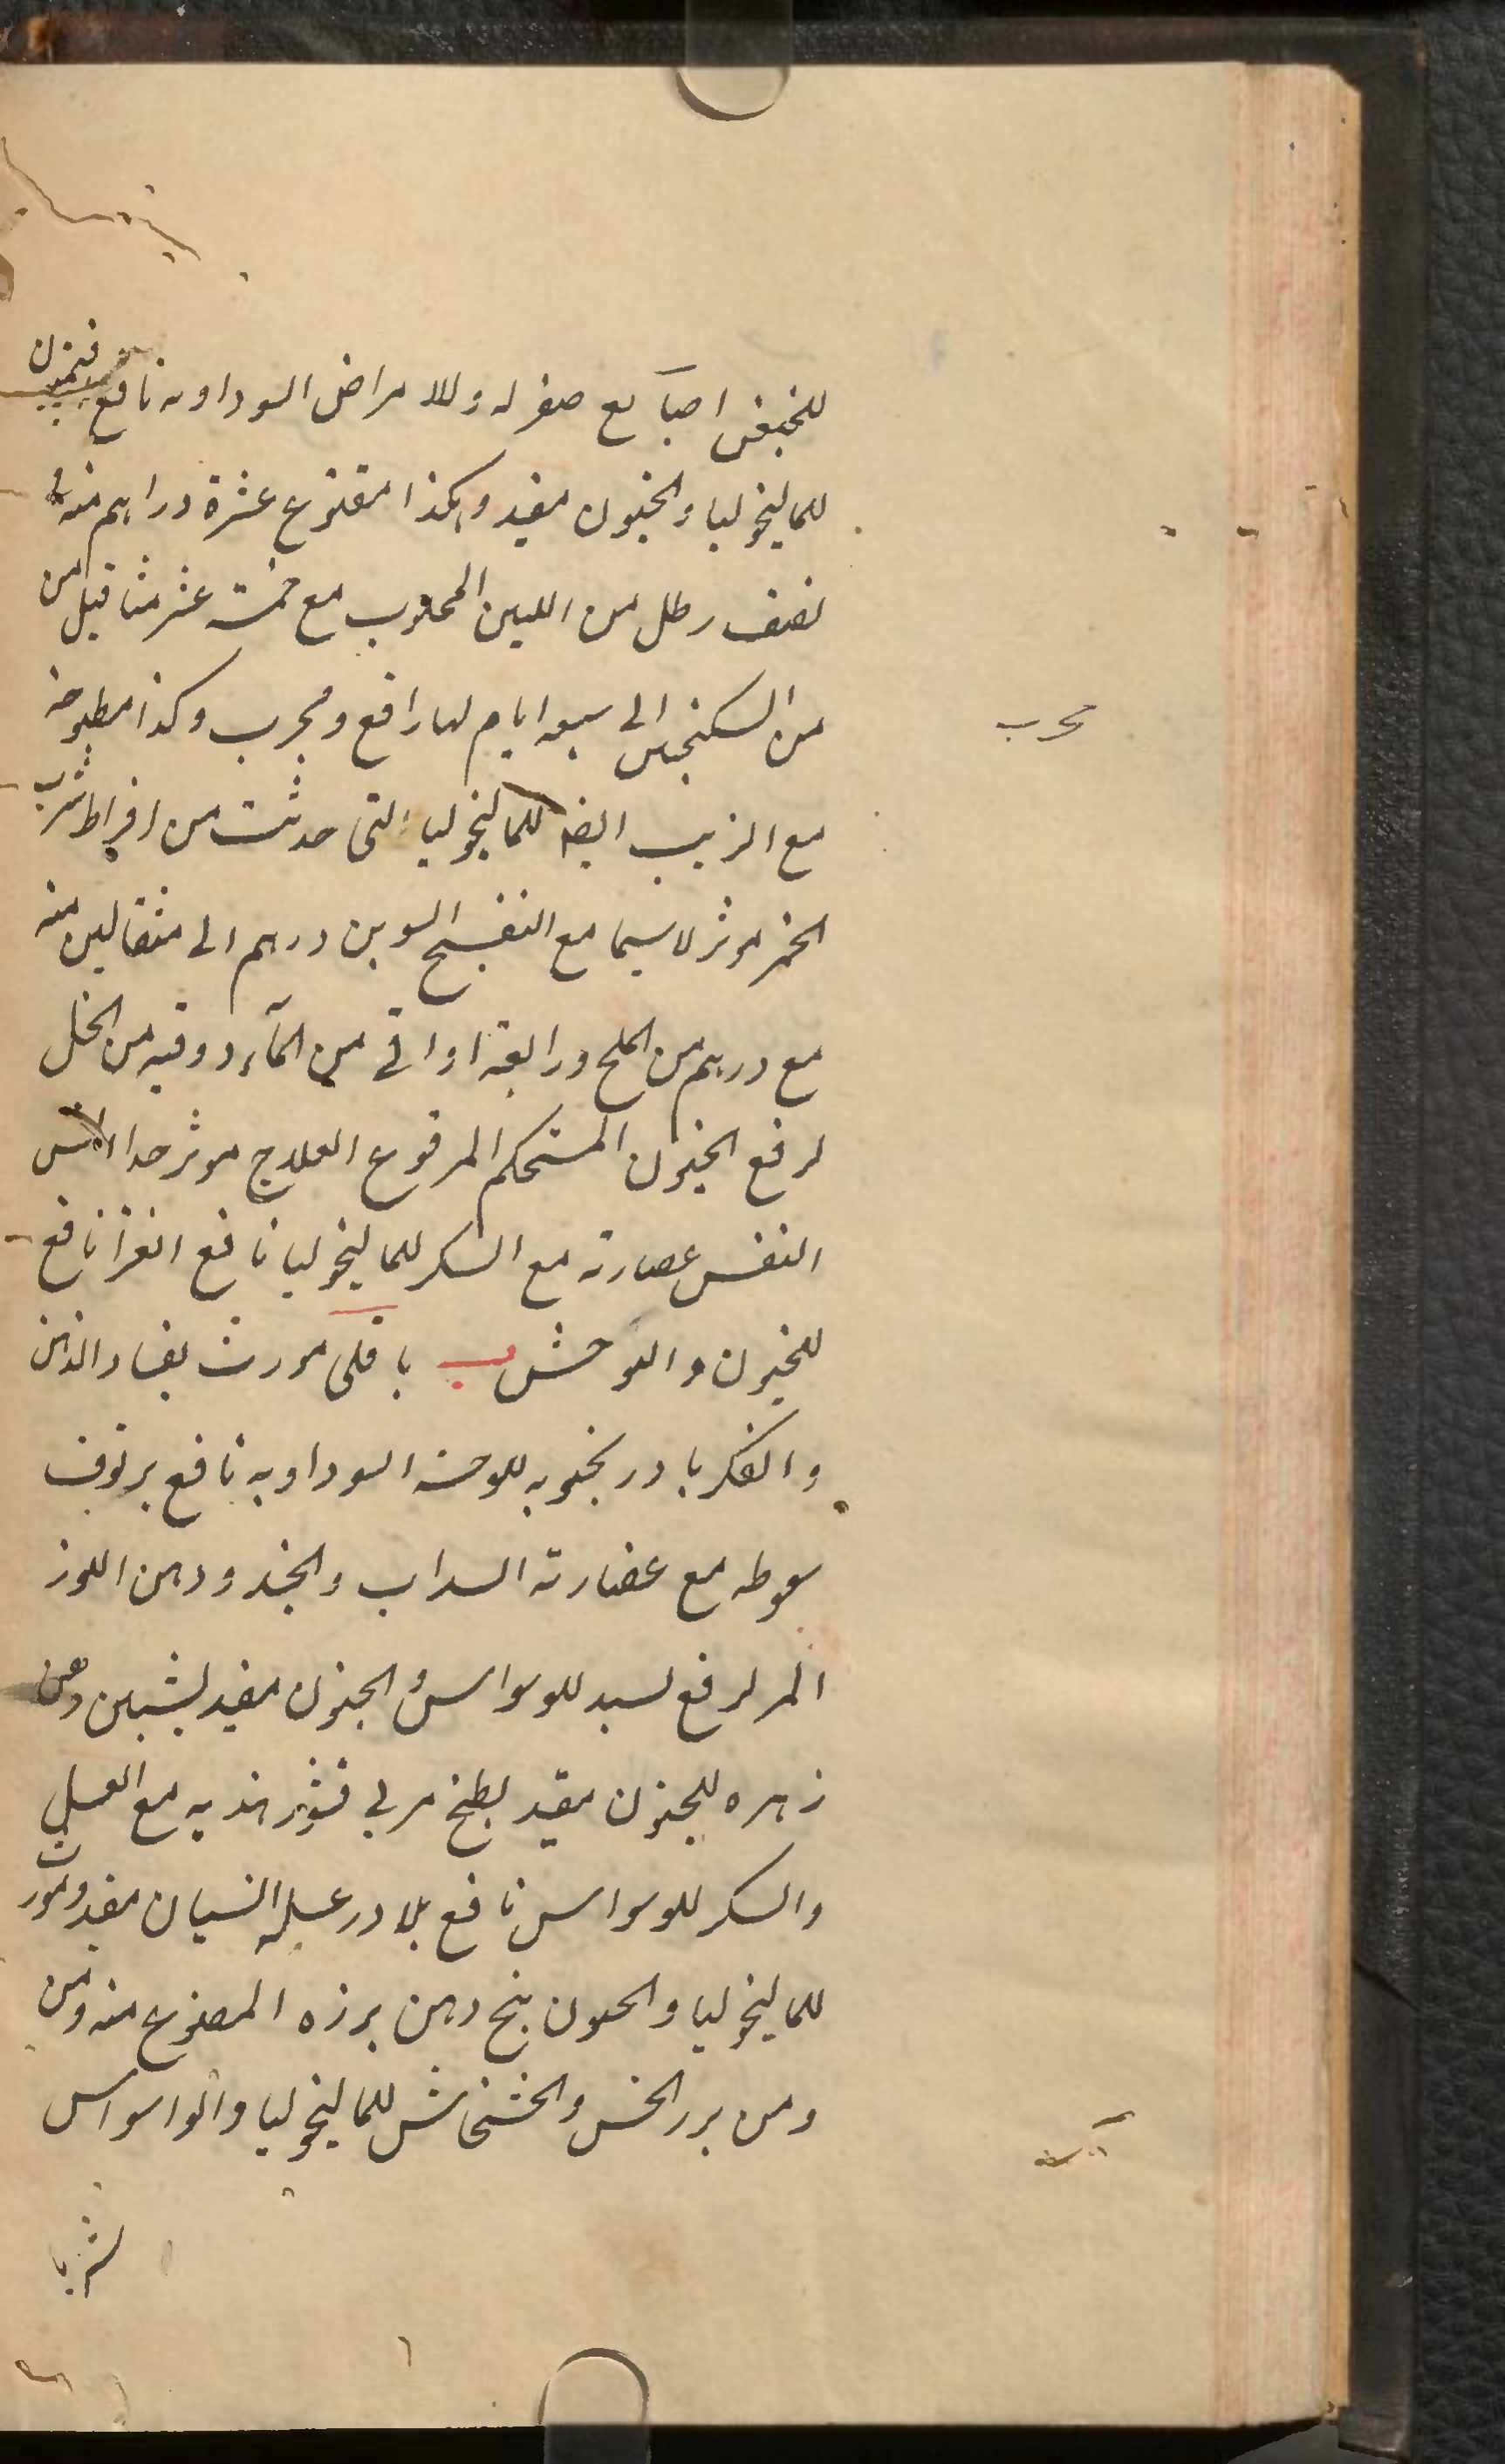 اصابع صفر له وللامراض السوداويه نافع
للماليخوليا والجنون مفيد وهكذا عشرة دراهم منه
نصف رطل من اللبن المحلوب مع خمسة عشر مثاقيل من
من السكنجبين الى سبعه ايام لها رافع ومجرب وكذا مطبوخه
مجرب
مع الزبيب ايضا للماليخوليا التى حدثت من افراط شرب
الخمر موثر لا سيما مع البنفسج درهم الى مثقالين منه
مع درهم من الملح ورابعة اواقى من المآء واوقيه من الخل
لرفع الجنون المستحكم المرفوع العلاج موثر جدا
عصارته مع السكر للماليخوليا نافع نافع
للجنون والتوحش باقلى مورث لفساد الذهن
والفكر بادرنجبويه للوحشه السوداويه نافع برنوف
سعوطه مع عصارته السداب والجند ودهن اللوز
المر لرفع للوسواس والجنون مفيد دهن
زهره للجنون مفيد بطيخ مربى قشور هنديه مع العسل
والسكر للوسواس نافع بلادر عسله النسيان مفيد ومورث
للماليخوليا والجنون بنج دهن بزره المصنوع منه ومن
ومن بزر الخس والخشخاش للماليخوليا والواسواس
شربا